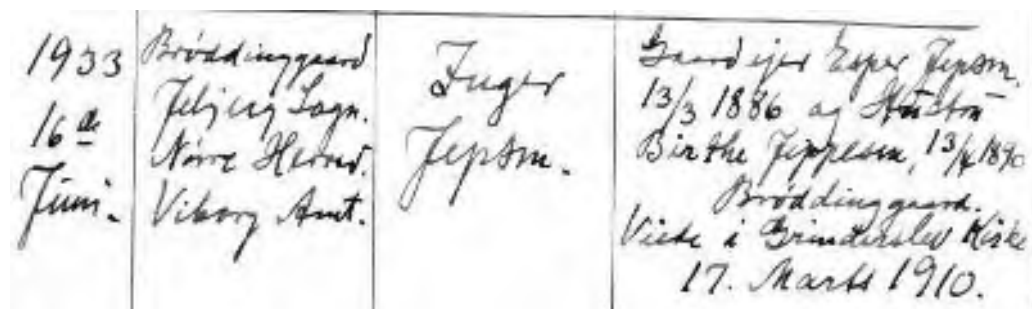 1933
16de
Juni.
Brøddinggaard
Jebjerg Sogn.
Nørre Herred.
Viborg Amt.
Inger
Jepsen.
Gaardejer Esper Jepsen.
13/3 1886 og Hustru
Birthe Jeppesen, 13/4 1890
Brøddinggaard.
Viede i Grinderslev Kirke
17. Marts 1910.